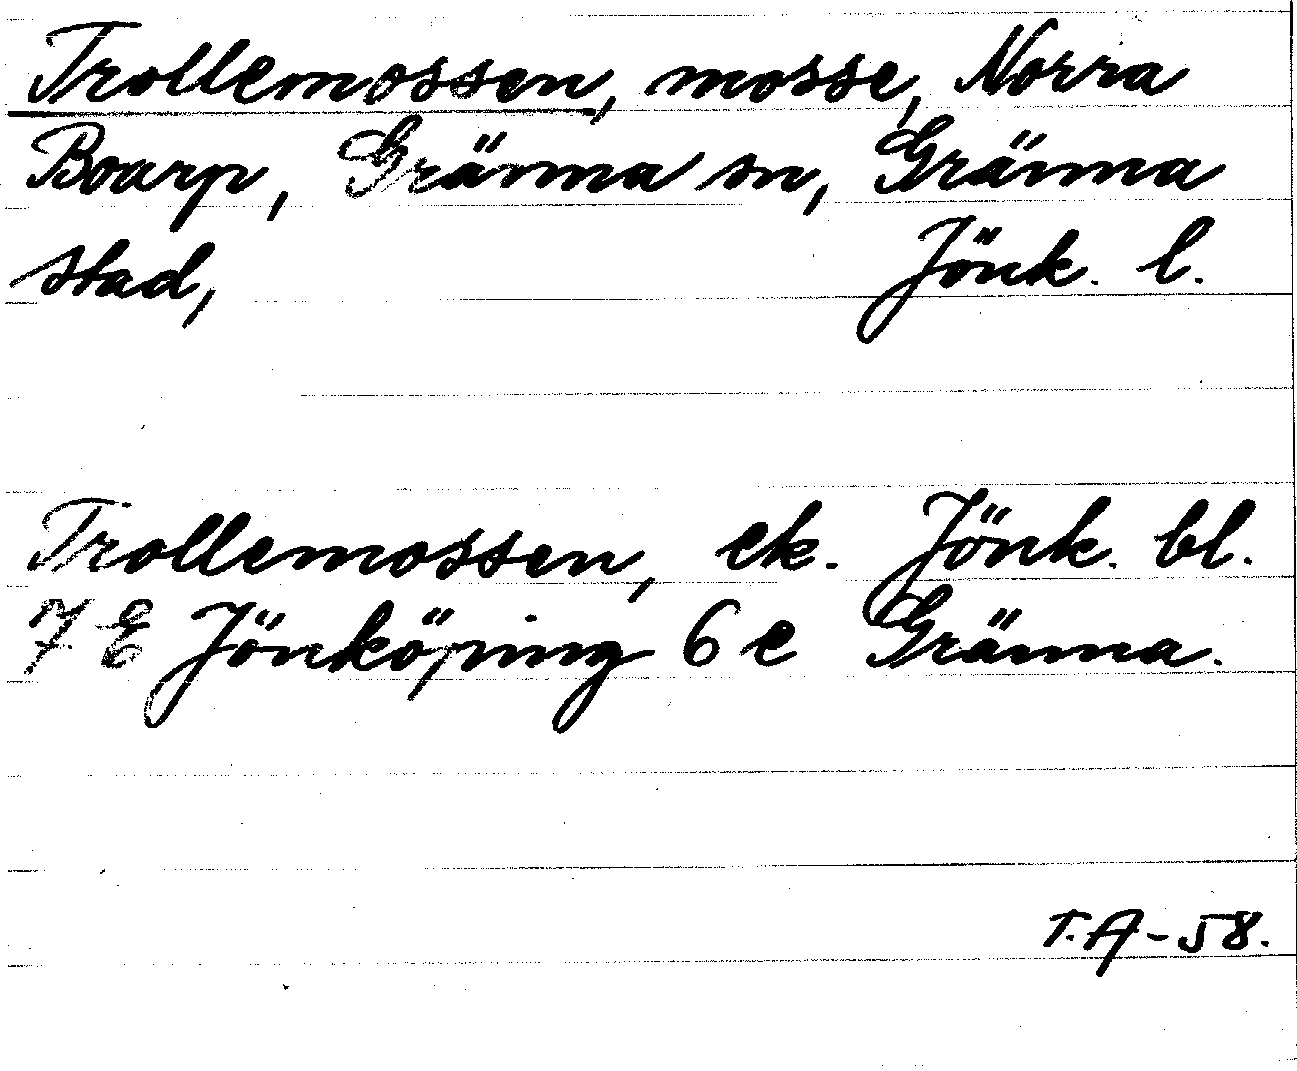 Trollemossen, mosse, Norra
Boarp, Gränna sn, Gränna
stad, Jönk. l.
Trollemossen, ek. Jönk. bl.
7 E Jönköping 6 e Gränna.
T.A-58.